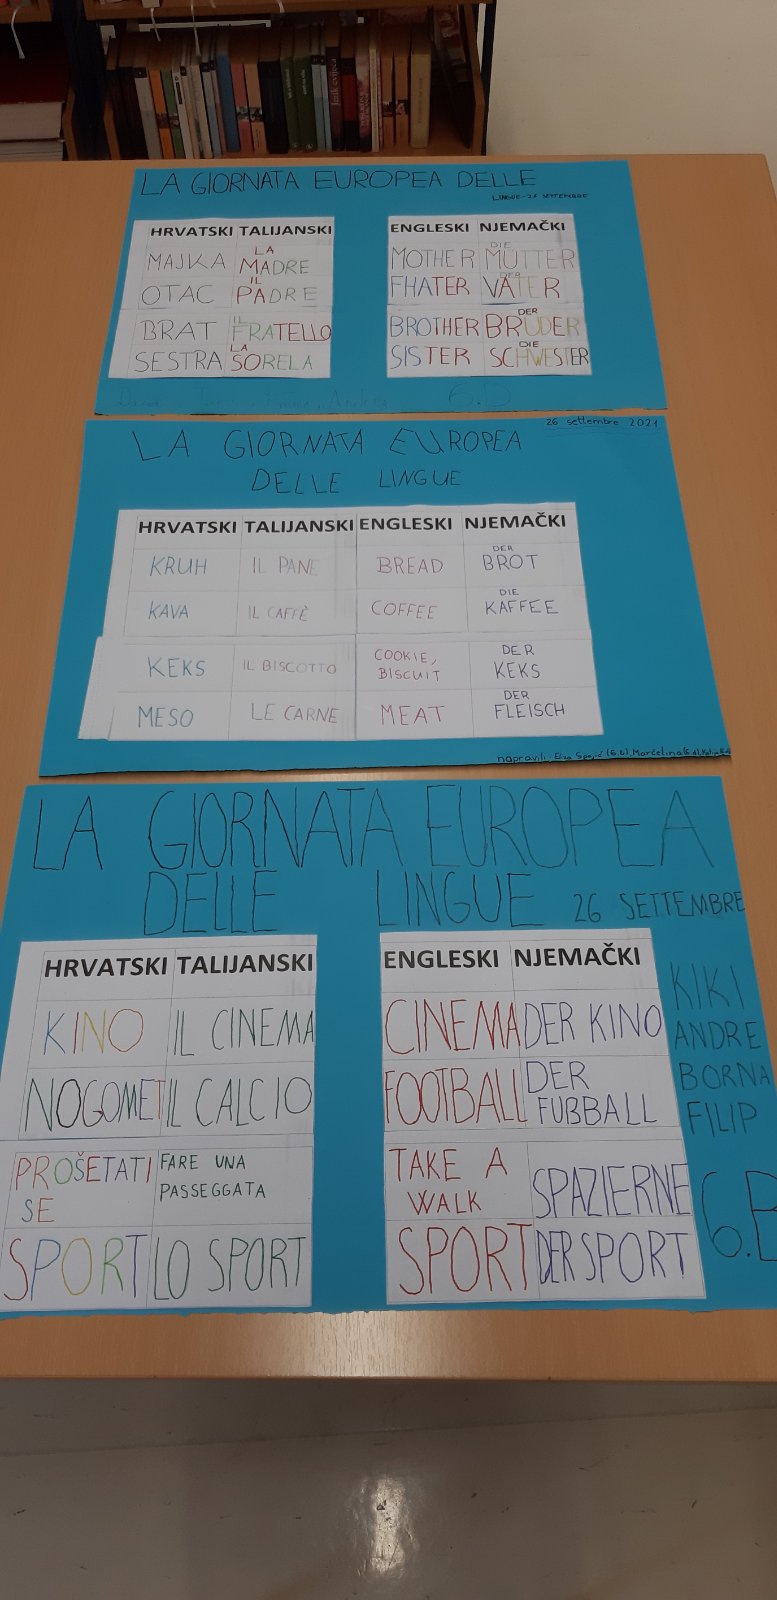 LA GIORNATA EUROPEA DELLE
LINGUE - 26 SETTEMBRE
HRVATSKI TALIJANSKI ENGLESKI NJEMAČKI
MAJKA LA MADRE MOTHER DIE MUTTER
OTAC IL PADRE FHATER DER VATER
BRAT IL FRATELLO BROTHER DER BRUDER
SESTRA LA SORELA SISTER DIE SCHWESTER
6.D
26 settembre 2021
LA GIORNATA EUROPEA
DELLE LINGUE
HRVATSKI TALIJANSKI ENGLESKI NJEMAČKI
KRUH IL PANE BREAD DER BROT
KAVA IL CAFFÈ COFFEE DIE KAFFEE
KEKS IL BISCOTTO COOKIE, BISCUIT DER KEKS
MESO LE CARNE MEAT DER FLEISCH
napravili
LA GIORNATA EUROPEA
DELLE LINGUE 26 SETTEMBRE
HRVATSKI TALIJANSKI ENGLESKI NJEMAČKI
KINO IL CINEMA CINEMA DER KINO
NOGOMET IL CALCIO FOOTBALL DER FUßBALL
PROŠETATI SE FARE UNA PASSEGGATA TAKE A WALK SPAZIERNE
SPORT LO SPORT SPORT DER SPORT
KIKI
ANDRE
BORNA
FILIP
6.B